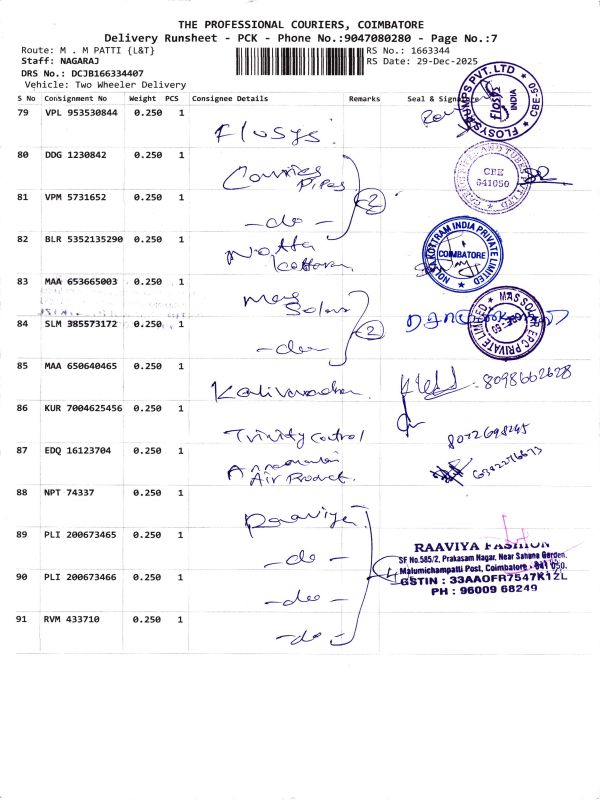 THE PROFESSIONAL COURIERS, COIMBATORE
Delivery Runsheet - PCK - Phone No.:9047080280 - Page No.:7
Route: M . M PATTI {L&T} RS No.: 1663344
Staff: NAGARAJ RS Date: 29-Dec-2025
DRS No.: DCJB166334407
Vehicle: Two Wheeler Delivery
S No Consignment No Weight PCS Consignee Details Remarks Seal & Signature
79 VPL 953530844 0.250 1 Flosys
80 DDG 1230842 0.250 1 Pipes
81 VPM 5731652 0.250 1 -do- 2
82 BLR 5352135290 0.250 1 Notta
83 MAA 653665003 0.250 1 Mas Solar
84 SLM 385573172 0.250 1 -do- 2
85 MAA 650640465 0.250 1 8098662628
86 KUR 7004625456 0.250 1 Trinity Control 8072698245
87 EDQ 16123704 0.250 1 Air Product.
88 NPT 74337 0.250 1 Raaviya
89 PLI 200673465 0.250 1 -do-
90 PLI 200673466 0.250 1 -do-
91 RVM 433710 0.250 1 -do-
FLOSYS PUMPS PVT. LTD
INDIA
CBE
641050
COIMBATORE
KOTTRAM INDIA PRIVATE LIMITED
MAS SOLAR EPC PRIVATE LIMITED
RAAVIYA FASHION
SF No.585/2, Prakasam Nagar, Near Sahana Garden,
Malumichampatti Post, Coimbatore - 641 050.
GSTIN : 33AAOFR7547K1ZL
PH : 96009 68249